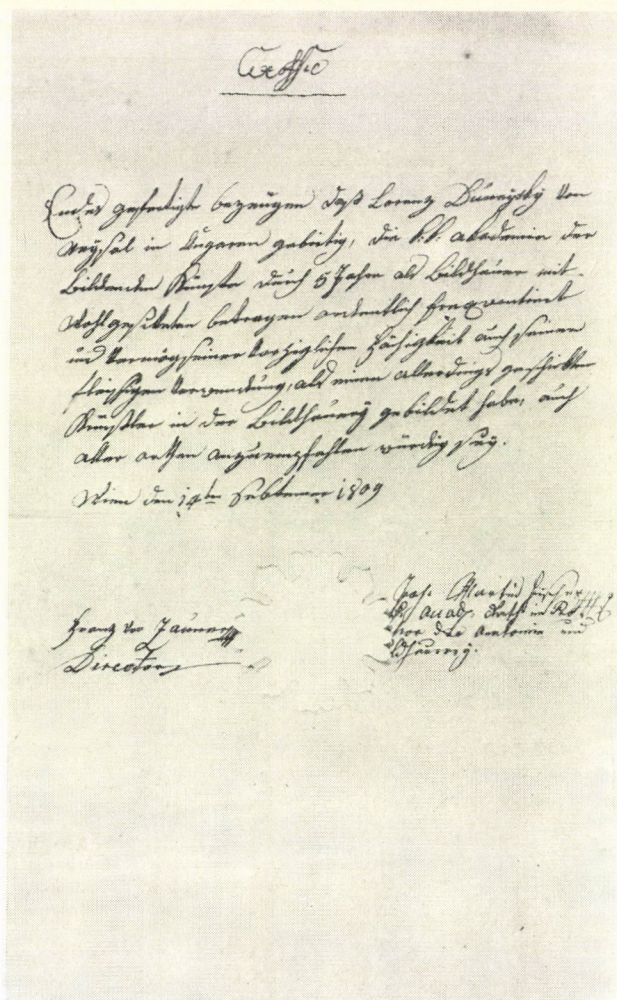 Attest
Endes gefertigte bezeugen daß Lorenz Dunaysky von
in Ungaren gebürtig, die k.k. akademie der
bildenden Künste durch 5 Jahre als Bildhauer mit
Wohlgesitteten betragen ordentlich frequentiert
und Vermög seiner vorzüglichen Fähigkeit auch seiner
fleissigen Verwendung, als einen allerdings geschickten
Künstler in der Bildhauerey gebildet habe, auch
aller orthen anzuempfehlen würdig sey.
Wien den 14ten Sebtember 1809
Franz v Zauner
Director
Joh. Martin Fischer
k. k. acad. Rath und
der Anatomie und